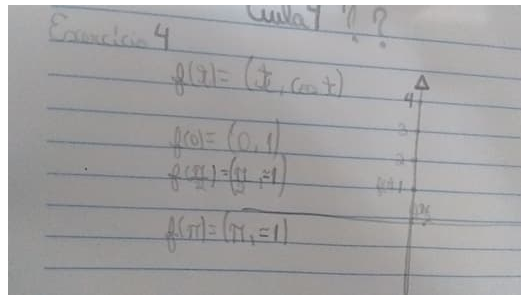 Aula 4 ? ?
Exercício 4
f(t) = (t, cos t)
f(0) = (0, 1)
f(π/2) = (π/2, =1)
f(π) = (π, =1)
4
3
2